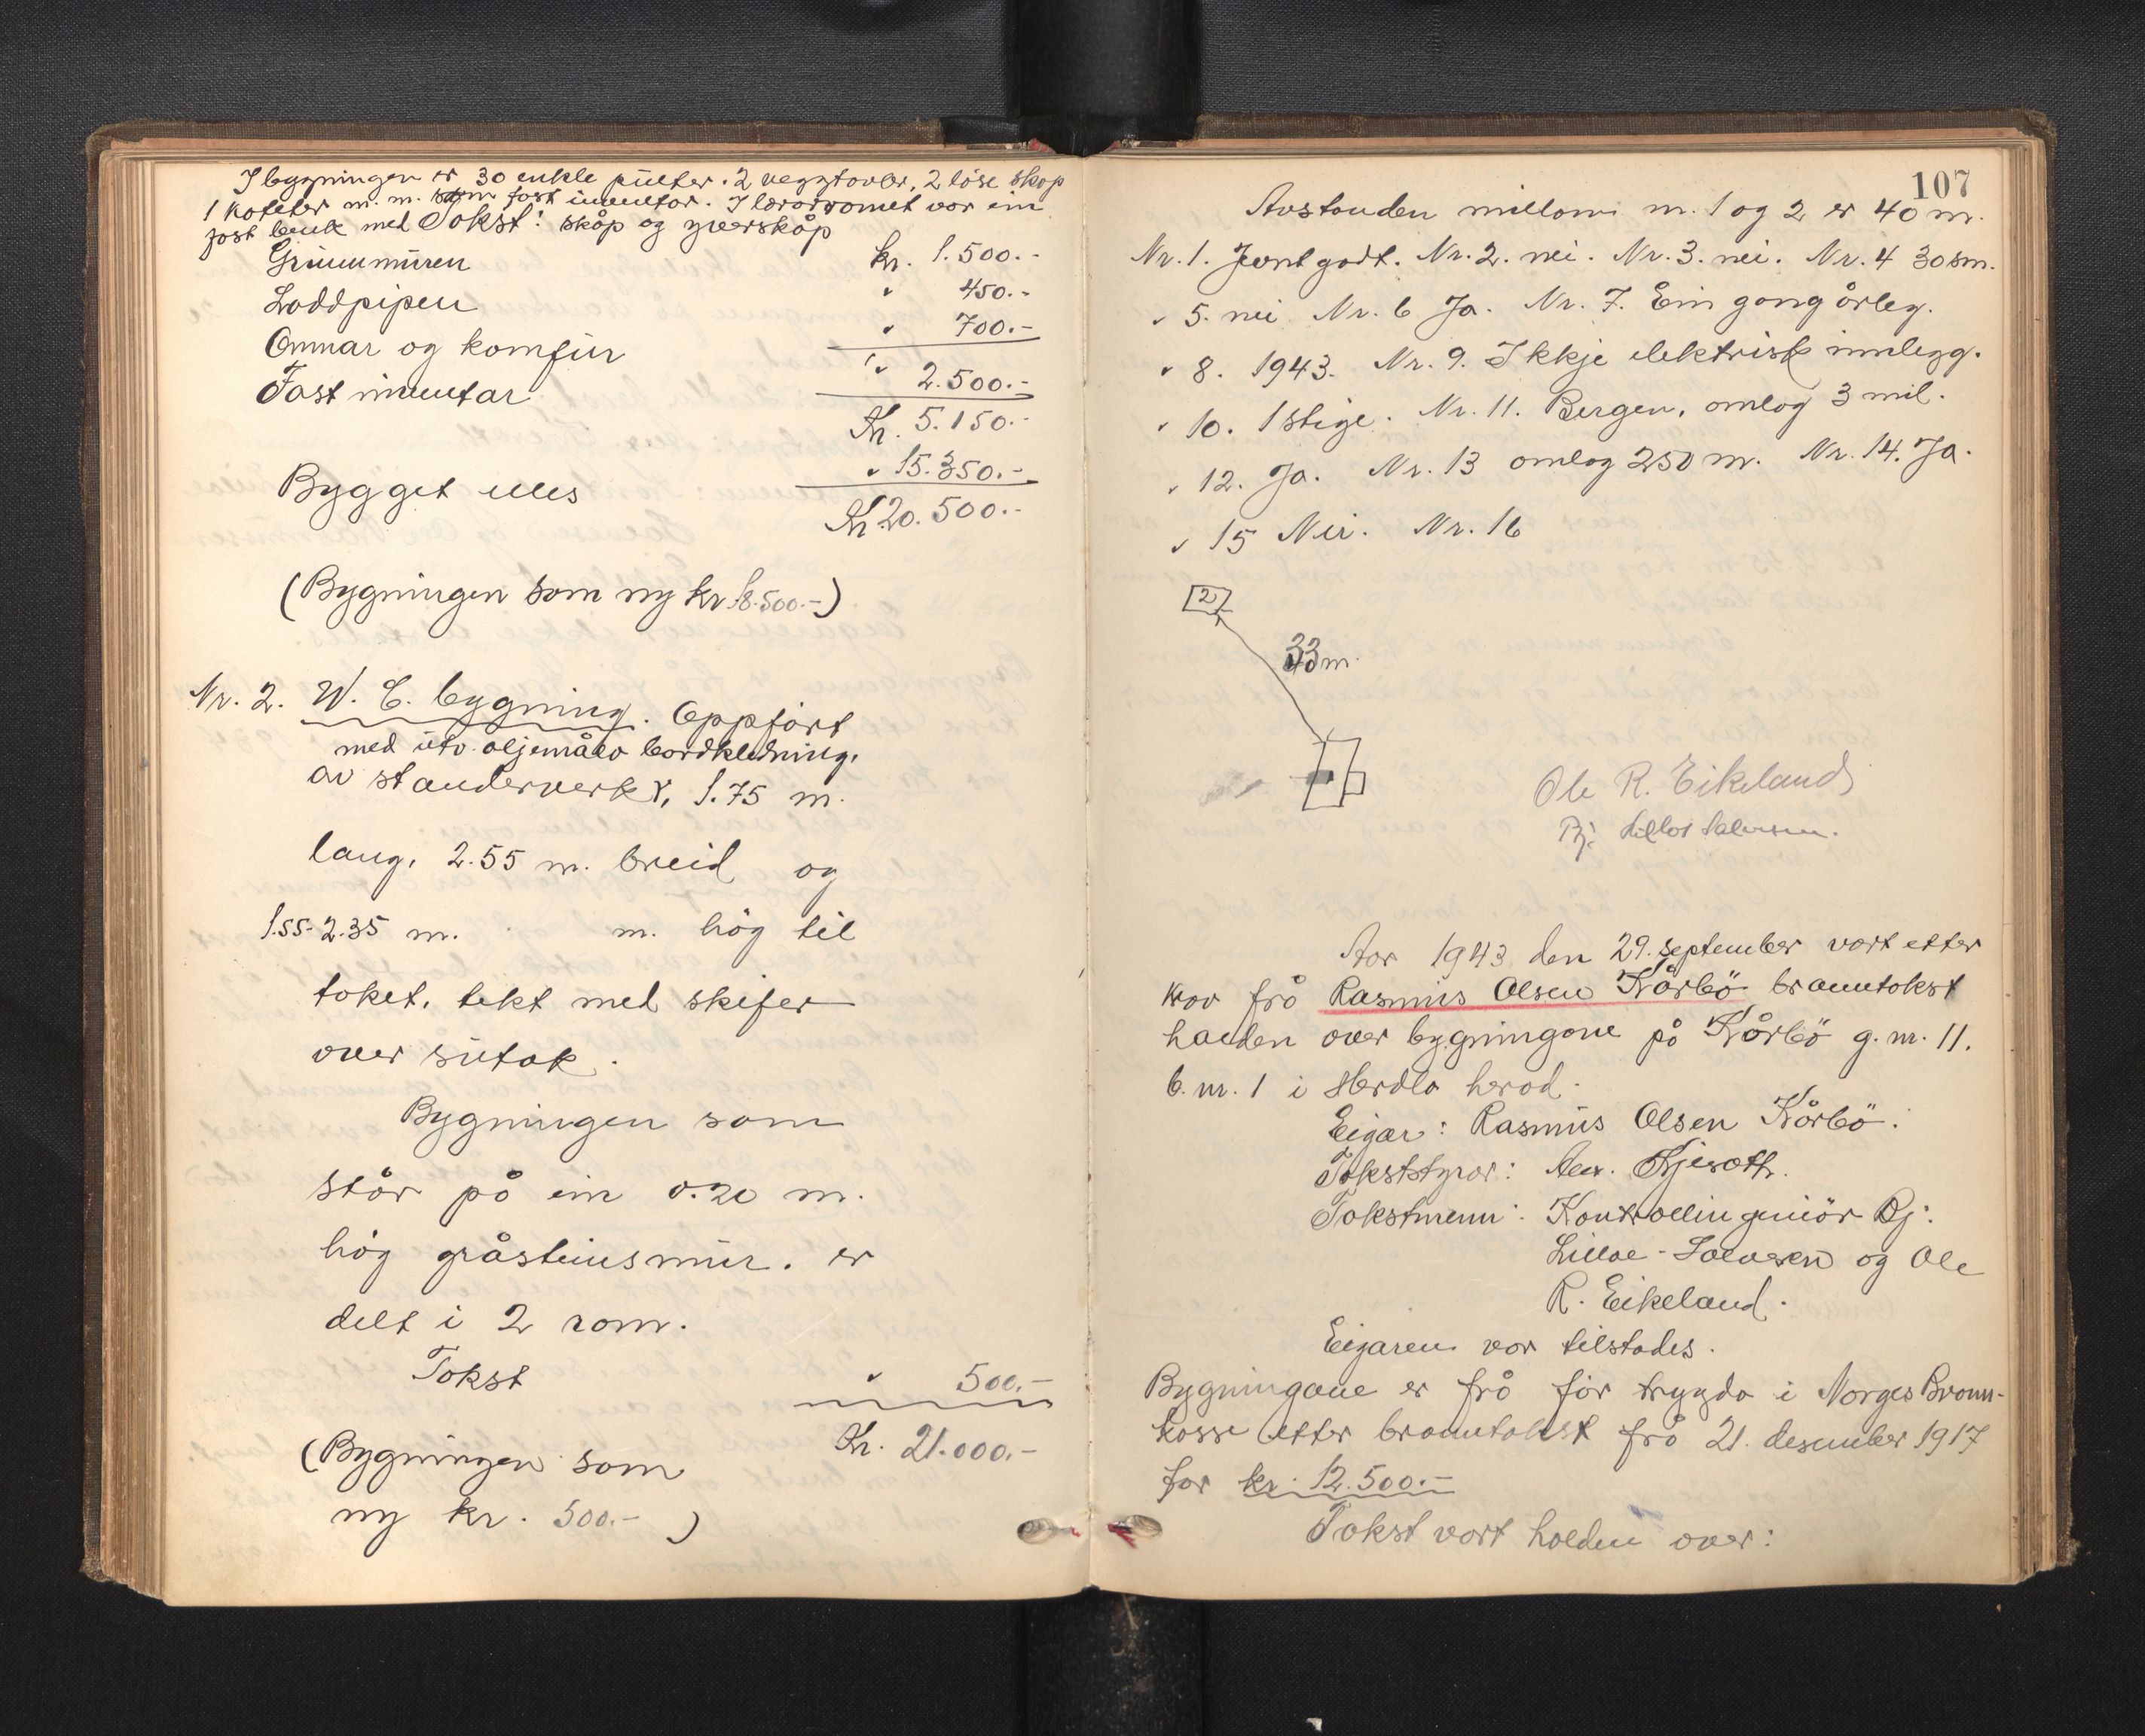 I bygningen er 30 enkle pulter. 2 veggtavler, 2 löse skap
1 kateter m. m. som fast inventar. I lærarromet var ein
fast benk med skåp og yverskåp
Takst:
Grunnmuren kr. 1.500.-
Loddpipen " 450.-
Omnar og komfur " 700.-
Fast inventar " 2.500.-
Kr. 5.150.-
Bygget elles " 15.350.-
Kr. 20.500.-
(Bygningen som ny kr. 18.500.-)
Nr. 2. W. C. bygning. Oppfört
med utv. oljemåla bordkledning,
av standerverk, 1.75 m.
lang, 2.55 m. breid og
1.55-2.35 m. m. hög til
taket, tekt med skifer
over sutak.
Bygningen som
står på ein 0.20 m.
hög gråsteinsmur. er
delt i 2 rom.
Takst " 500.-
Kr. 21.000.-
(Bygningen som
ny kr. 500.- )
107
Avstanden millom nr. 1 og 2 er 40 m.
Nr. 1. Jamt godt. Nr. 2. nei. Nr. 3. nei. Nr. 4 30 sm.
" 5. nei Nr. 6 Ja. Nr. 7. Ein gong årleg.
" 8. 1943. Nr. 9. Ikkje elektrisk innlegg.
" 10. 1 stige. Nr. 11. Bergen, omlag 3 mil.
" 12. Ja. Nr. 13 omlag 250 m. Nr. 14. Ja.
" 15 Nei. Nr. 16
2
33 m.
Ole R. Eikeland
Bj. Lilloe Salvesen.
Aar 1943 den 29. september vart etter
krav frå Rasmus Olsen Kårbö branntakst
halden over bygningane på Kårbö g. nr. 11.
b. nr. 1 i Herdla herad.
Eigar: Rasmus Olsen Kårbö.
Takststyrar: Alex. Kjerath.
Takstmenn: Kontrollingeniör Bj.
Lilloe-Salvesen og Ole
R. Eikeland.
Eigaren var tilstades.
Bygningane er frå för trygda i Norges Brann-
kasse etter branntakst frå 21. desember 1917
for kr. 12.500.-
Takst vart halden over: